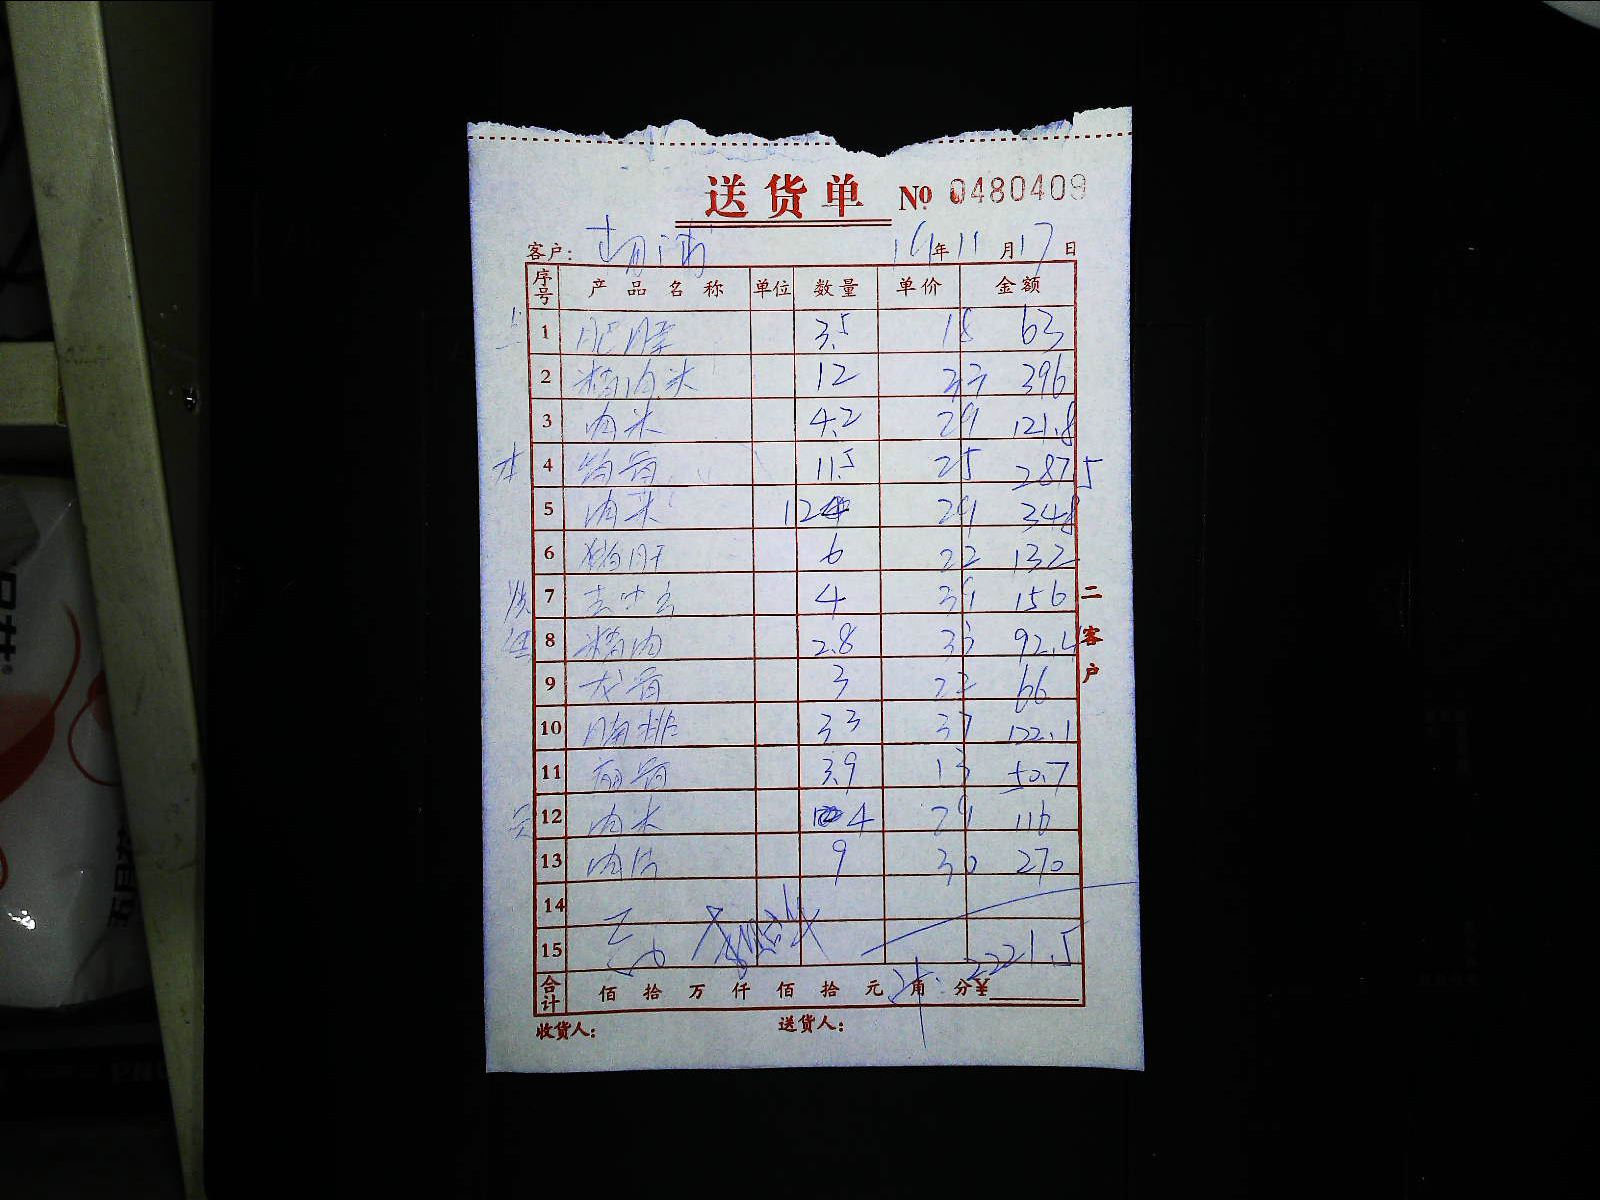 送货单 № 0480409
客户: 19年11月17日
序号 产品名称 单位 数量 单价 金额
1 肥膘 3.5 18 63
2 精肉米 12 33 396
3 肉米 4.2 29 121.8
4 筒骨 11.5 25 287.5
5 肉米 12 29 348
6 猪肝 6 22 132
7 4 39 156
8 精肉 2.8 33 92.4
9 龙骨 3 22 66
10 腩排 3.3 37 122.1
11 扇骨 3.9 13 50.7
12 肉米 4 29 116
13 肉片 9 30 270
14
15
合计 佰拾万仟佰拾元角分¥ 2221.5
收货人: 送货人:
二客户